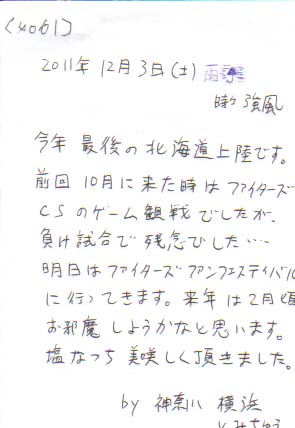 (4061)
2011年 12月 3日 (土) 雨
時々 強風
今年 最後の 北海道上陸です。
前回 10月に 来た 時は ファイターズ
CS のゲーム観戦 でしたが、
負け試合で 残念でした…
明日は ファイターズ ファンフェスティバル
に 行ってきます。来年 は 2月頃
お邪魔 しようかなと 思います。
塩なっち 美味しく 頂きました。
by 神奈川 横浜